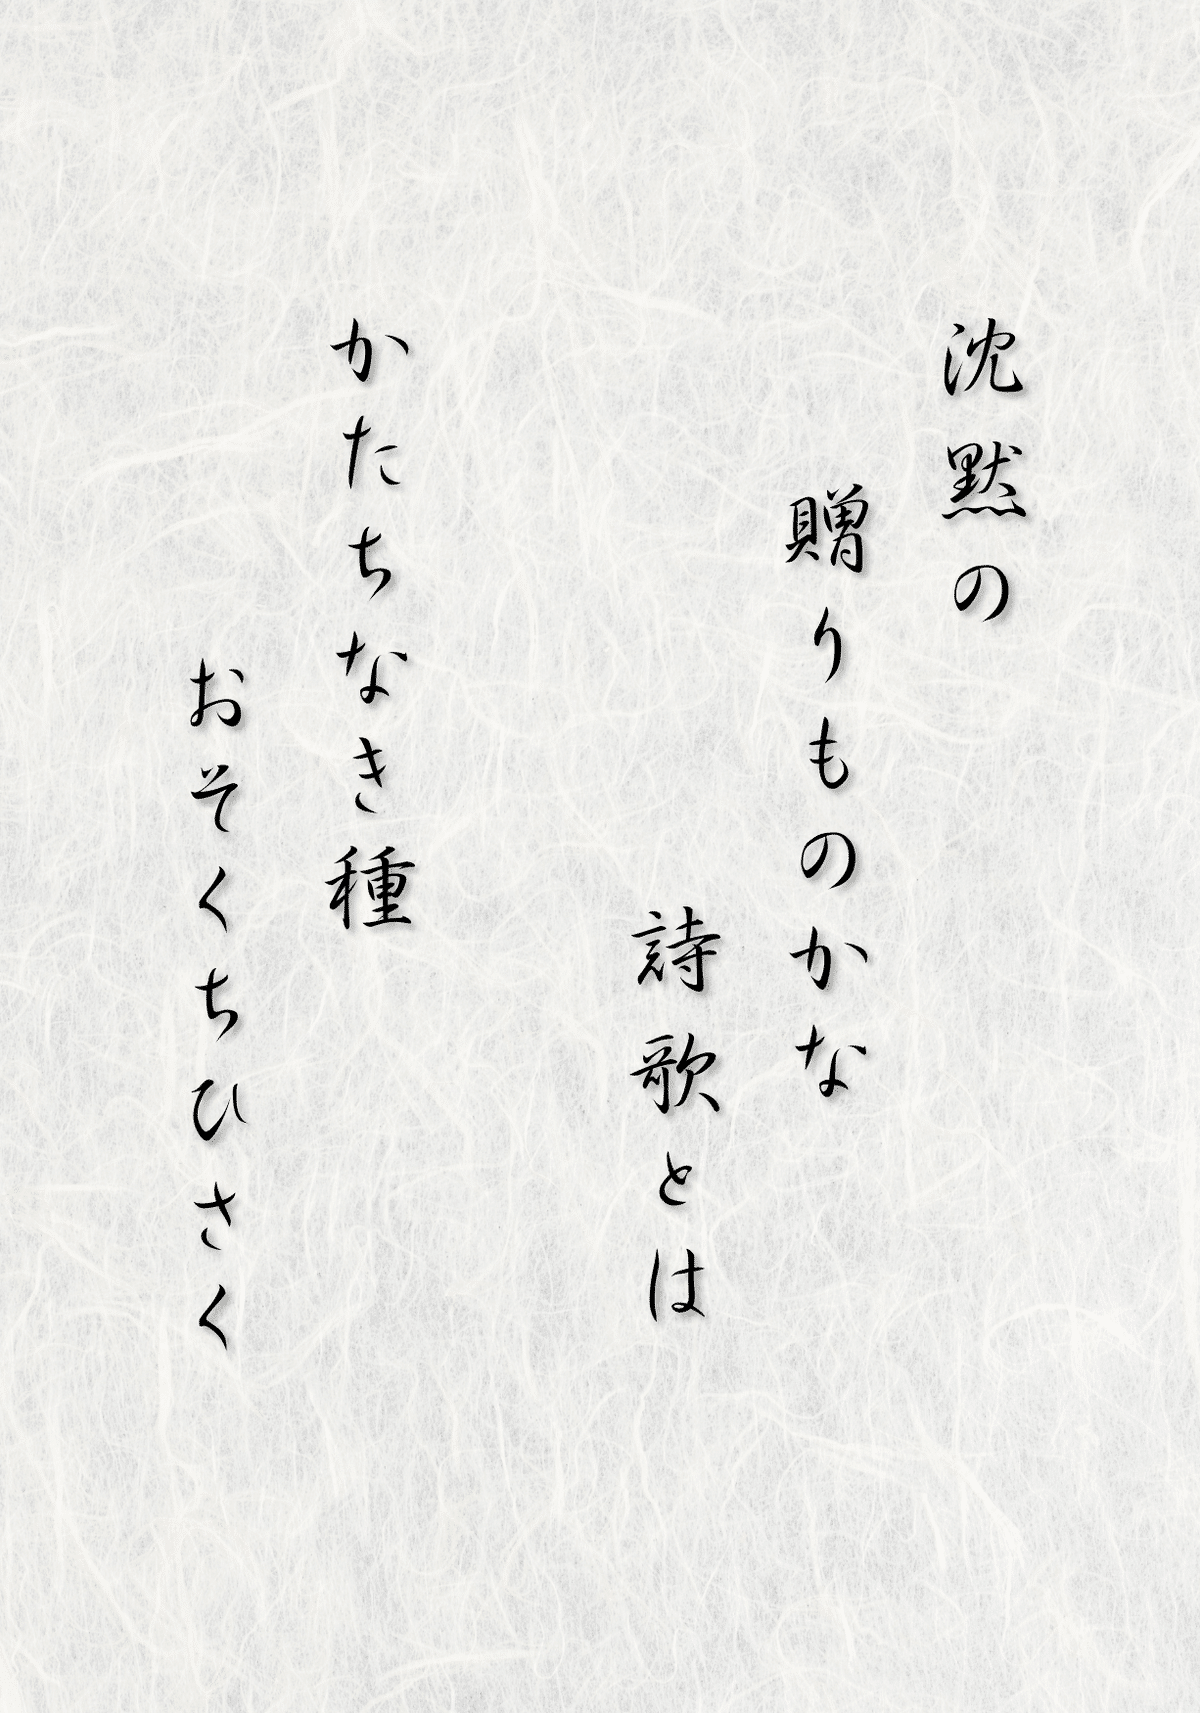 沈黙の
贈りものかな
詩歌とは
かたちなき種
おそくちひさく